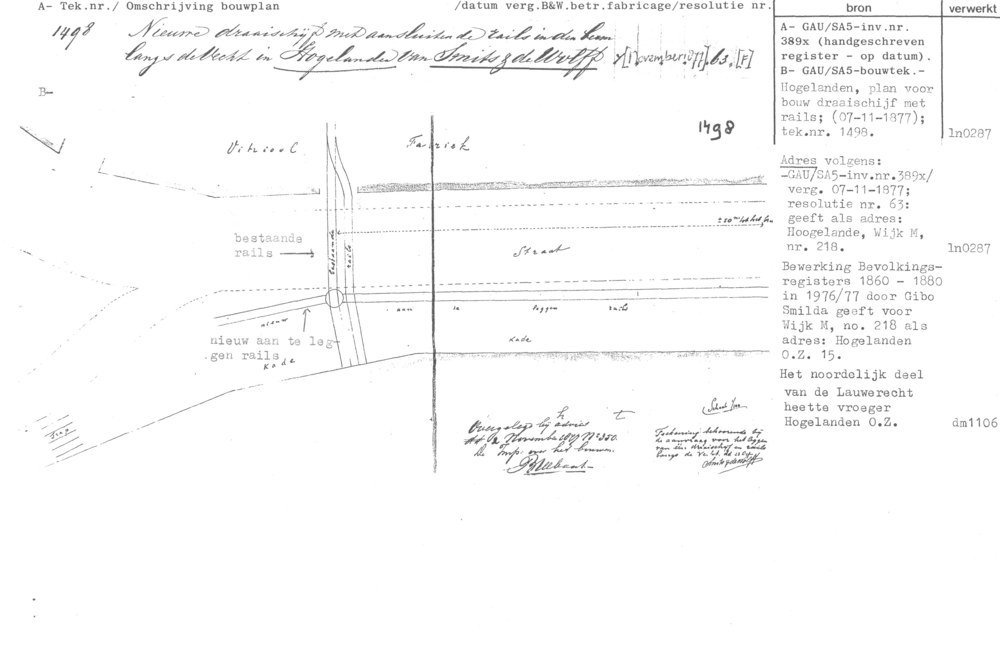 A- Tek.nr./ Omschrijving bouwplan /datum verg.B&W.betr.fabricage/resolutie nr. bron verwerkt
1498 Nieuwe draaischijf met aansluitende rails in den berm
langs de Vecht in Hogelanden van Smits & de Wolff 7[November 1877].63.[F]
B-
1498
Vitriool Fabriek
bestaande
rails
bestaande
rails
Straat
nieuw aan te leggen rails
nieuw aan te leg-
gen rails
Kade
Kade
Trap
Schaal
Overgelegd bij advies
dd 2 November 1877 No 350.
De Insp. over het bouwen.
Teekening behoorende bij
de aanvraag voor het leggen
van een draaischijf en rails
langs de Vecht
Smits & de Wolff
A- GAU/SA5-inv.nr.
389x (handgeschreven
register - op datum).
B- GAU/SA5-bouwtek.-
Hogelanden, plan voor
bouw draaischijf met
rails; (07-11-1877);
tek.nr. 1498. ln0287
Adres volgens:
-GAU/SA5-inv.nr.389x/
verg. 07-11-1877;
resolutie nr. 63:
geeft als adres:
Hoogelande, Wijk M,
nr. 218. ln0287
Bewerking Bevolkings-
registers 1860 - 1880
in 1976/77 door Gibo
Smilda geeft voor
Wijk M, no. 218 als
adres: Hogelanden
O.Z. 15.
Het noordelijk deel
van de Lauwerecht
heette vroeger
Hogelanden O.Z. dm1106